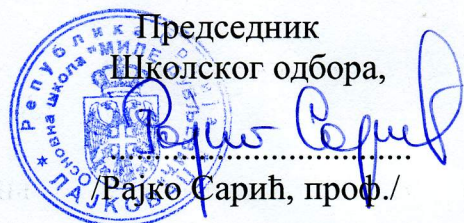 Председник
Школског одбора,
Рајко Сарић
/Рајко Сарић, проф./
Република
Основна школа „МИЛЕ
ЛАЈКОВ